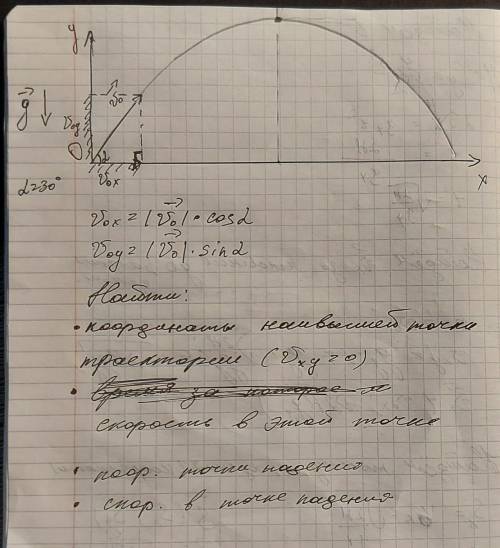 y
g
v₀
v₀y
O
α
v₀x
x
α=30°
v₀x = |v₀| · cosα
v₀y = |v₀| · sinα
Найти:
• координаты наивысшей точки
траектории (vₓy = 0)
• время за которое
скорость в этой точке
• коор. точки падения
• скор. в точке падения